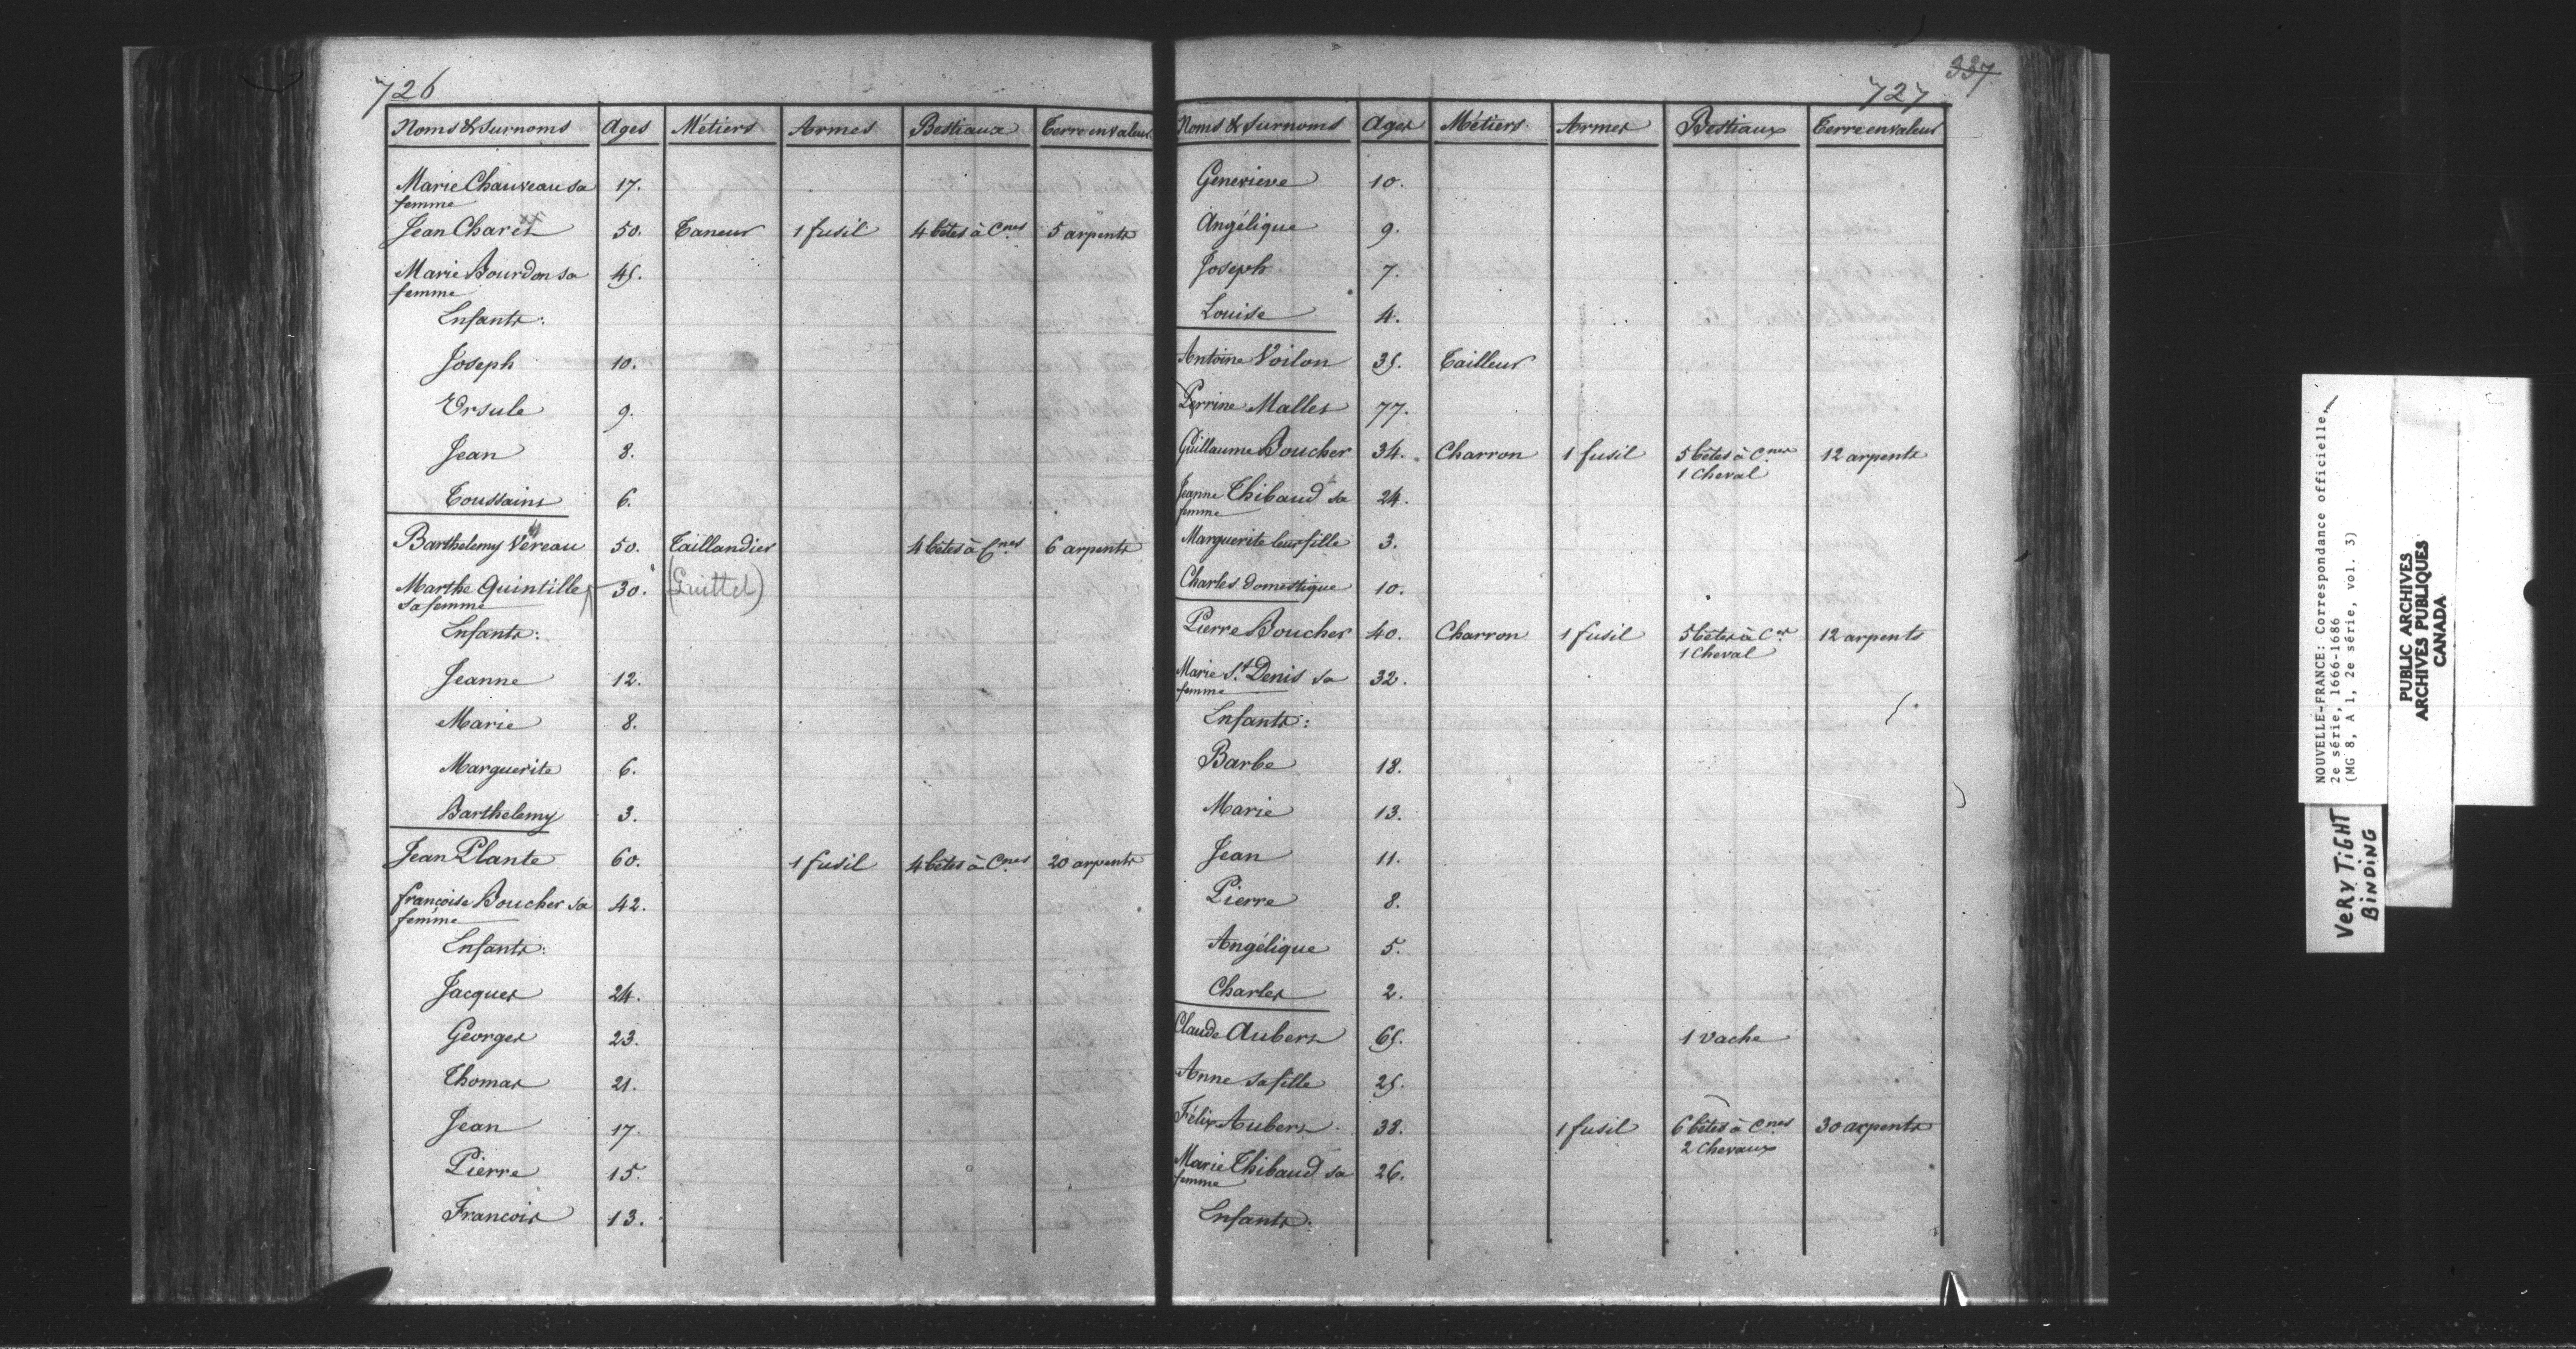 726
Noms & Surnoms Ages Métiers Armes Bestiaux Terre en valeur
Marie Chauveau sa 17.
femme
Jean Charet 50. Taneur 1 fusil 4 bêtes à Cnes 5 arpents
Marie Bourdon sa 45.
femme
Enfants:
Joseph 10.
Ursule 9.
Jean 8.
Toussaint 6.
Barthelemy Vereau 50. Taillandier 4 bêtes à Cnes 6 arpents
Marthe Quintille 30. (Quittel)
sa femme
Enfants:
Jeanne 12.
Marie 8.
Marguerite 6.
Barthelemy 3.
Jean Plante 60. 1 fusil 4 bêtes à Cnes 20 arpents
françoise Boucher sa 42.
femme
Enfants:
Jacques 24.
Georges 23.
Thomas 21.
Jean 17.
Pierre 15.
Francois 13.
337
727
Noms & Surnoms Ages Métiers Armes Bestiaux Terre en valeur
Genevieve 10.
Angélique 9.
Joseph 7.
Louise 4.
Antoine Voilon 35. Tailleur
Perrine Mallet 77.
Guillaume Boucher 34. Charron 1 fusil 5 bêtes à Cnes 12 arpents
1 Cheval
Jeanne Thibaud sa 24.
femme
Marguerite leur fille 3.
Charles domestique 10.
Pierre Boucher 40. Charron 1 fusil 5 bêtes à Ces 12 arpents
1 Cheval
Marie St. Denis sa 32.
femme
Enfants:
Barbe 18.
Marie 13.
Jean 11.
Pierre 8.
Angélique 5.
Charles 2.
Claude Aubert 65. 1 vache
Anne sa fille 25.
Félix Aubert 38. 1 fusil 6 bêtes à Cnes 30 arpents
2 Chevaux
Marie Thibaud sa 26.
femme
Enfants:
NOUVELLE-FRANCE: Correspondance officielle,
2e série, 1666-1686
(MG 8, A 1, 2e série, vol. 3)
PUBLIC ARCHIVES
ARCHIVES PUBLIQUES
CANADA
VERY TIGHT
BINDING